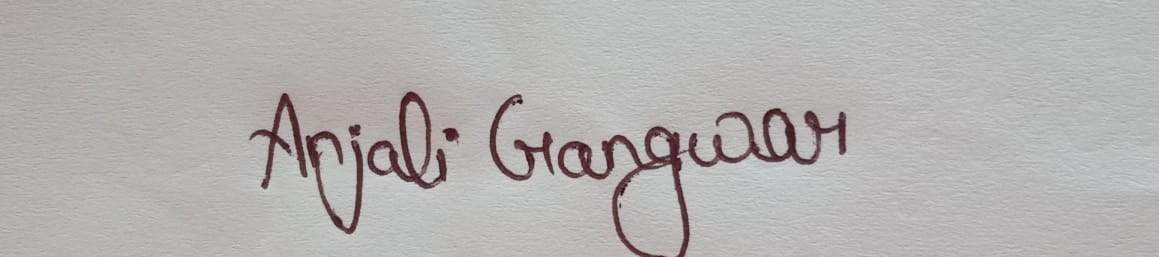 Anjali Gangwar